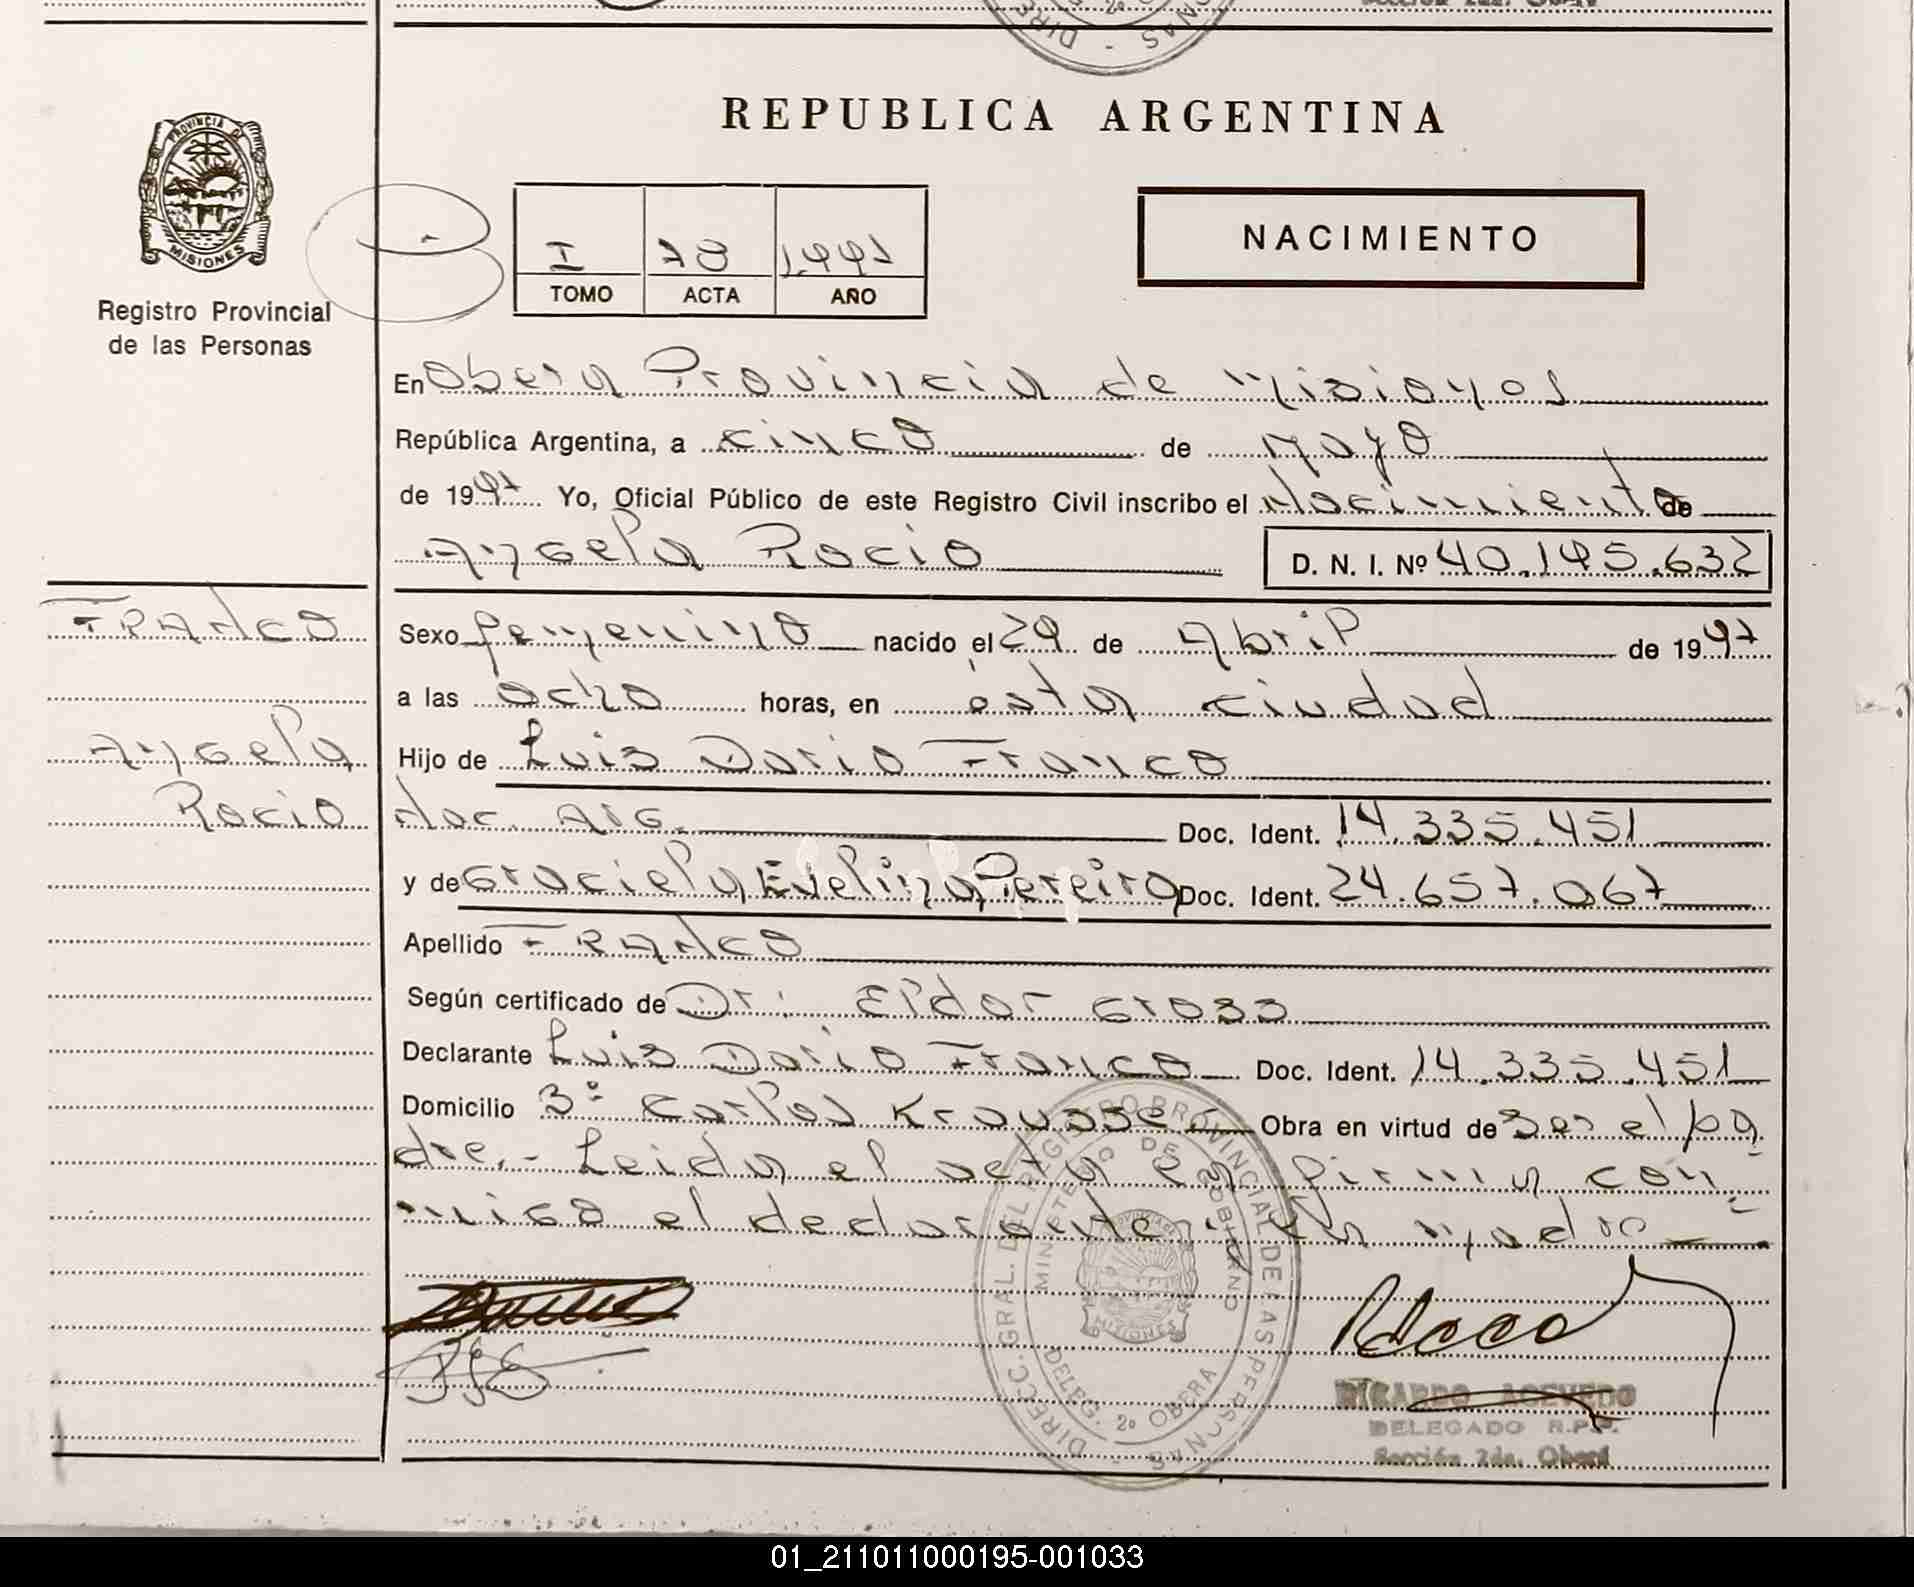 REPUBLICA ARGENTINA
PROVINCIA DE
MISIONES
Registro Provincial
de las Personas
I 78 1997
TOMO ACTA AÑO
NACIMIENTO
En Obera Provincia de Misiones
República Argentina, a cinco de Mayo
de 1997 Yo, Oficial Público de este Registro Civil inscribo el Nacimiento de
Angela Rocio D. N. I. Nº 40.145.632
FRANCO
Angela
Rocio
Sexo femenino nacido el 29 de Abril de 1997
a las ocho horas, en ésta ciudad
Hijo de Luis Dario Franco
Nac. Arg. Doc. Ident. 14.335.451
y de Graciela Evelina Pereira Doc. Ident. 24.657.067
Apellido FRANCO
Según certificado de Dr: Eldor Gross
Declarante Luis Dario Franco Doc. Ident. 14.335.451
Domicilio Bº Carlos Krausse Obra en virtud de ser el pa
dre.- Leida el acta la firma con
migo el declarante y la madre
DIRECC. GRAL. DEL REGISTRO PROVINCIAL DE LAS PERSONAS
MINISTERIO DE GOBIERNO
MISIONES
DELEG. 2º OBERA
RICARDO ACEVEDO
DELEGADO R.P.P.
Sección 2da. Oberá
01_211011000195-001033